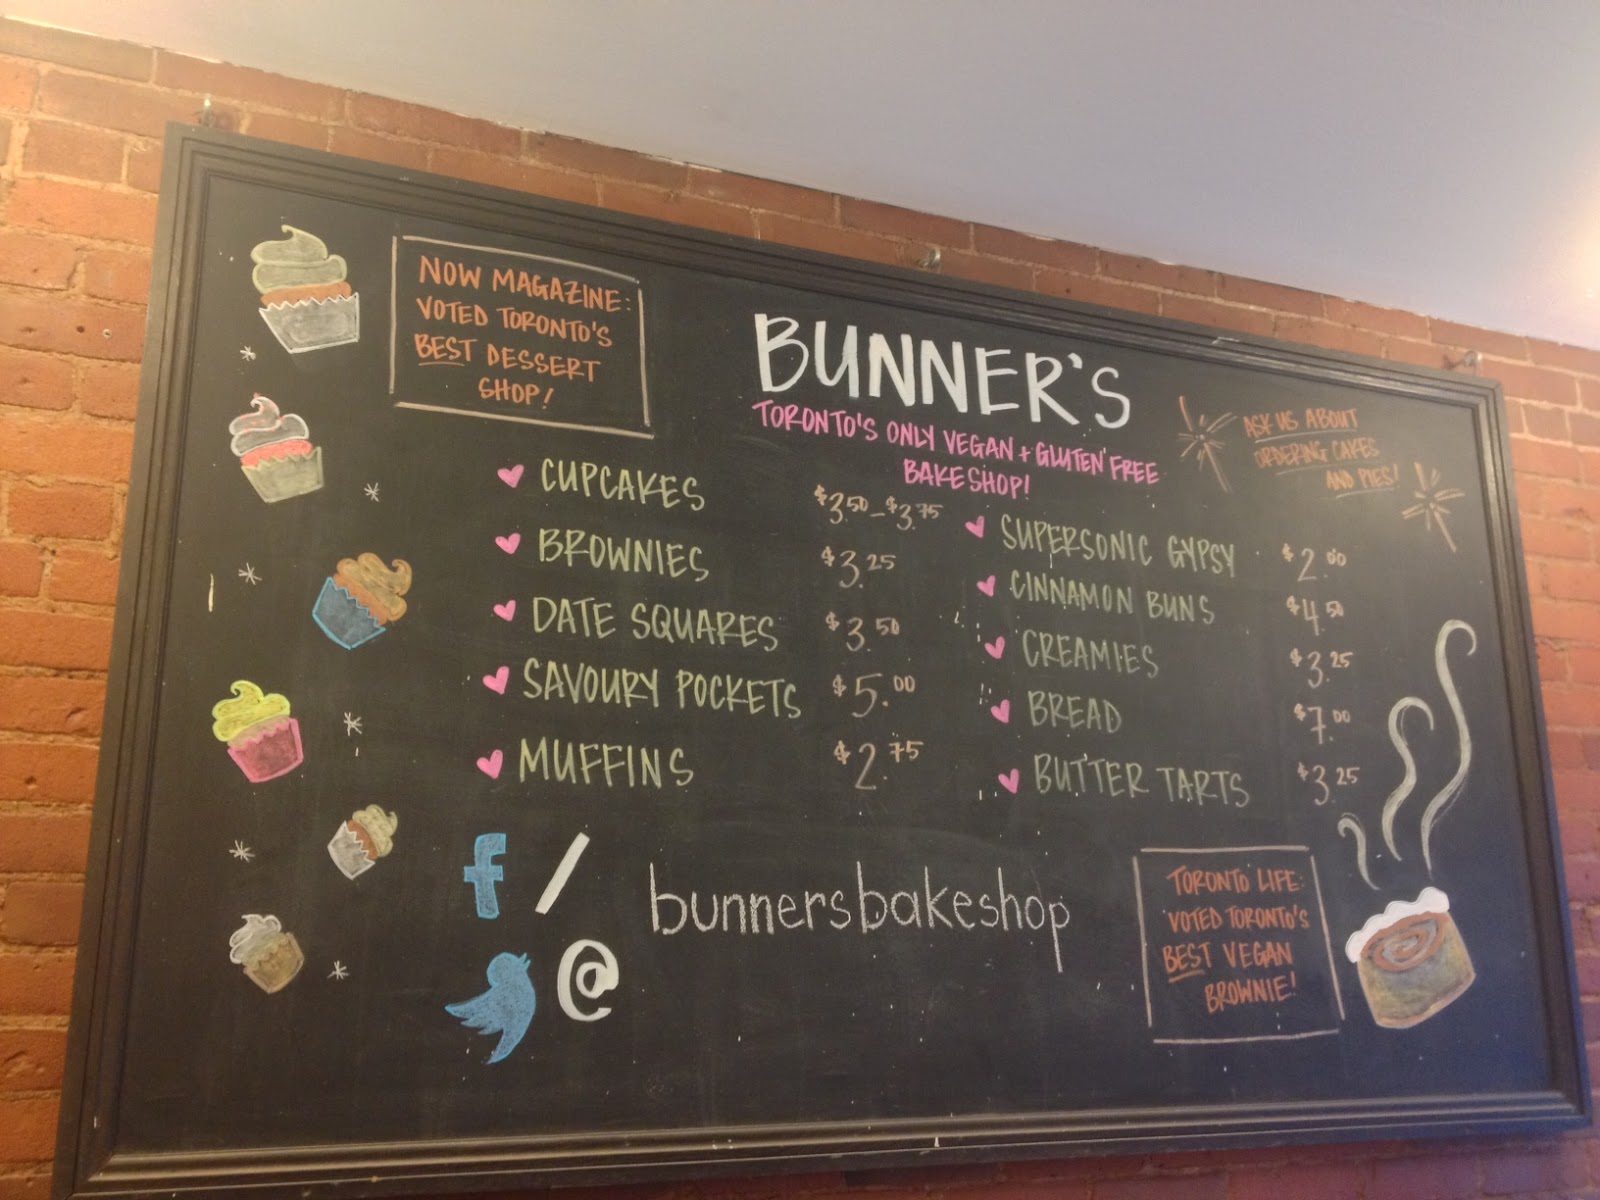 NOW MAGAZINE:
VOTED TORONTO'S
BEST DESSERT
SHOP!
BUNNER'S
TORONTO'S ONLY VEGAN + GLUTEN FREE
BAKESHOP!
ASK US ABOUT
ORDERING CAKES
AND PIES!
CUPCAKES $3.50-$3.75
BROWNIES $3.25
DATE SQUARES $3.50
SAVOURY POCKETS $5.00
MUFFINS $2.75
SUPERSONIC GYPSY $2.00
CINNAMON BUNS $4.50
CREAMIES $3.25
BREAD $7.00
BUTTER TARTS $3.25
f /
@
bunnersbakeshop
TORONTO LIFE:
VOTED TORONTO'S
BEST VEGAN
BROWNIE!